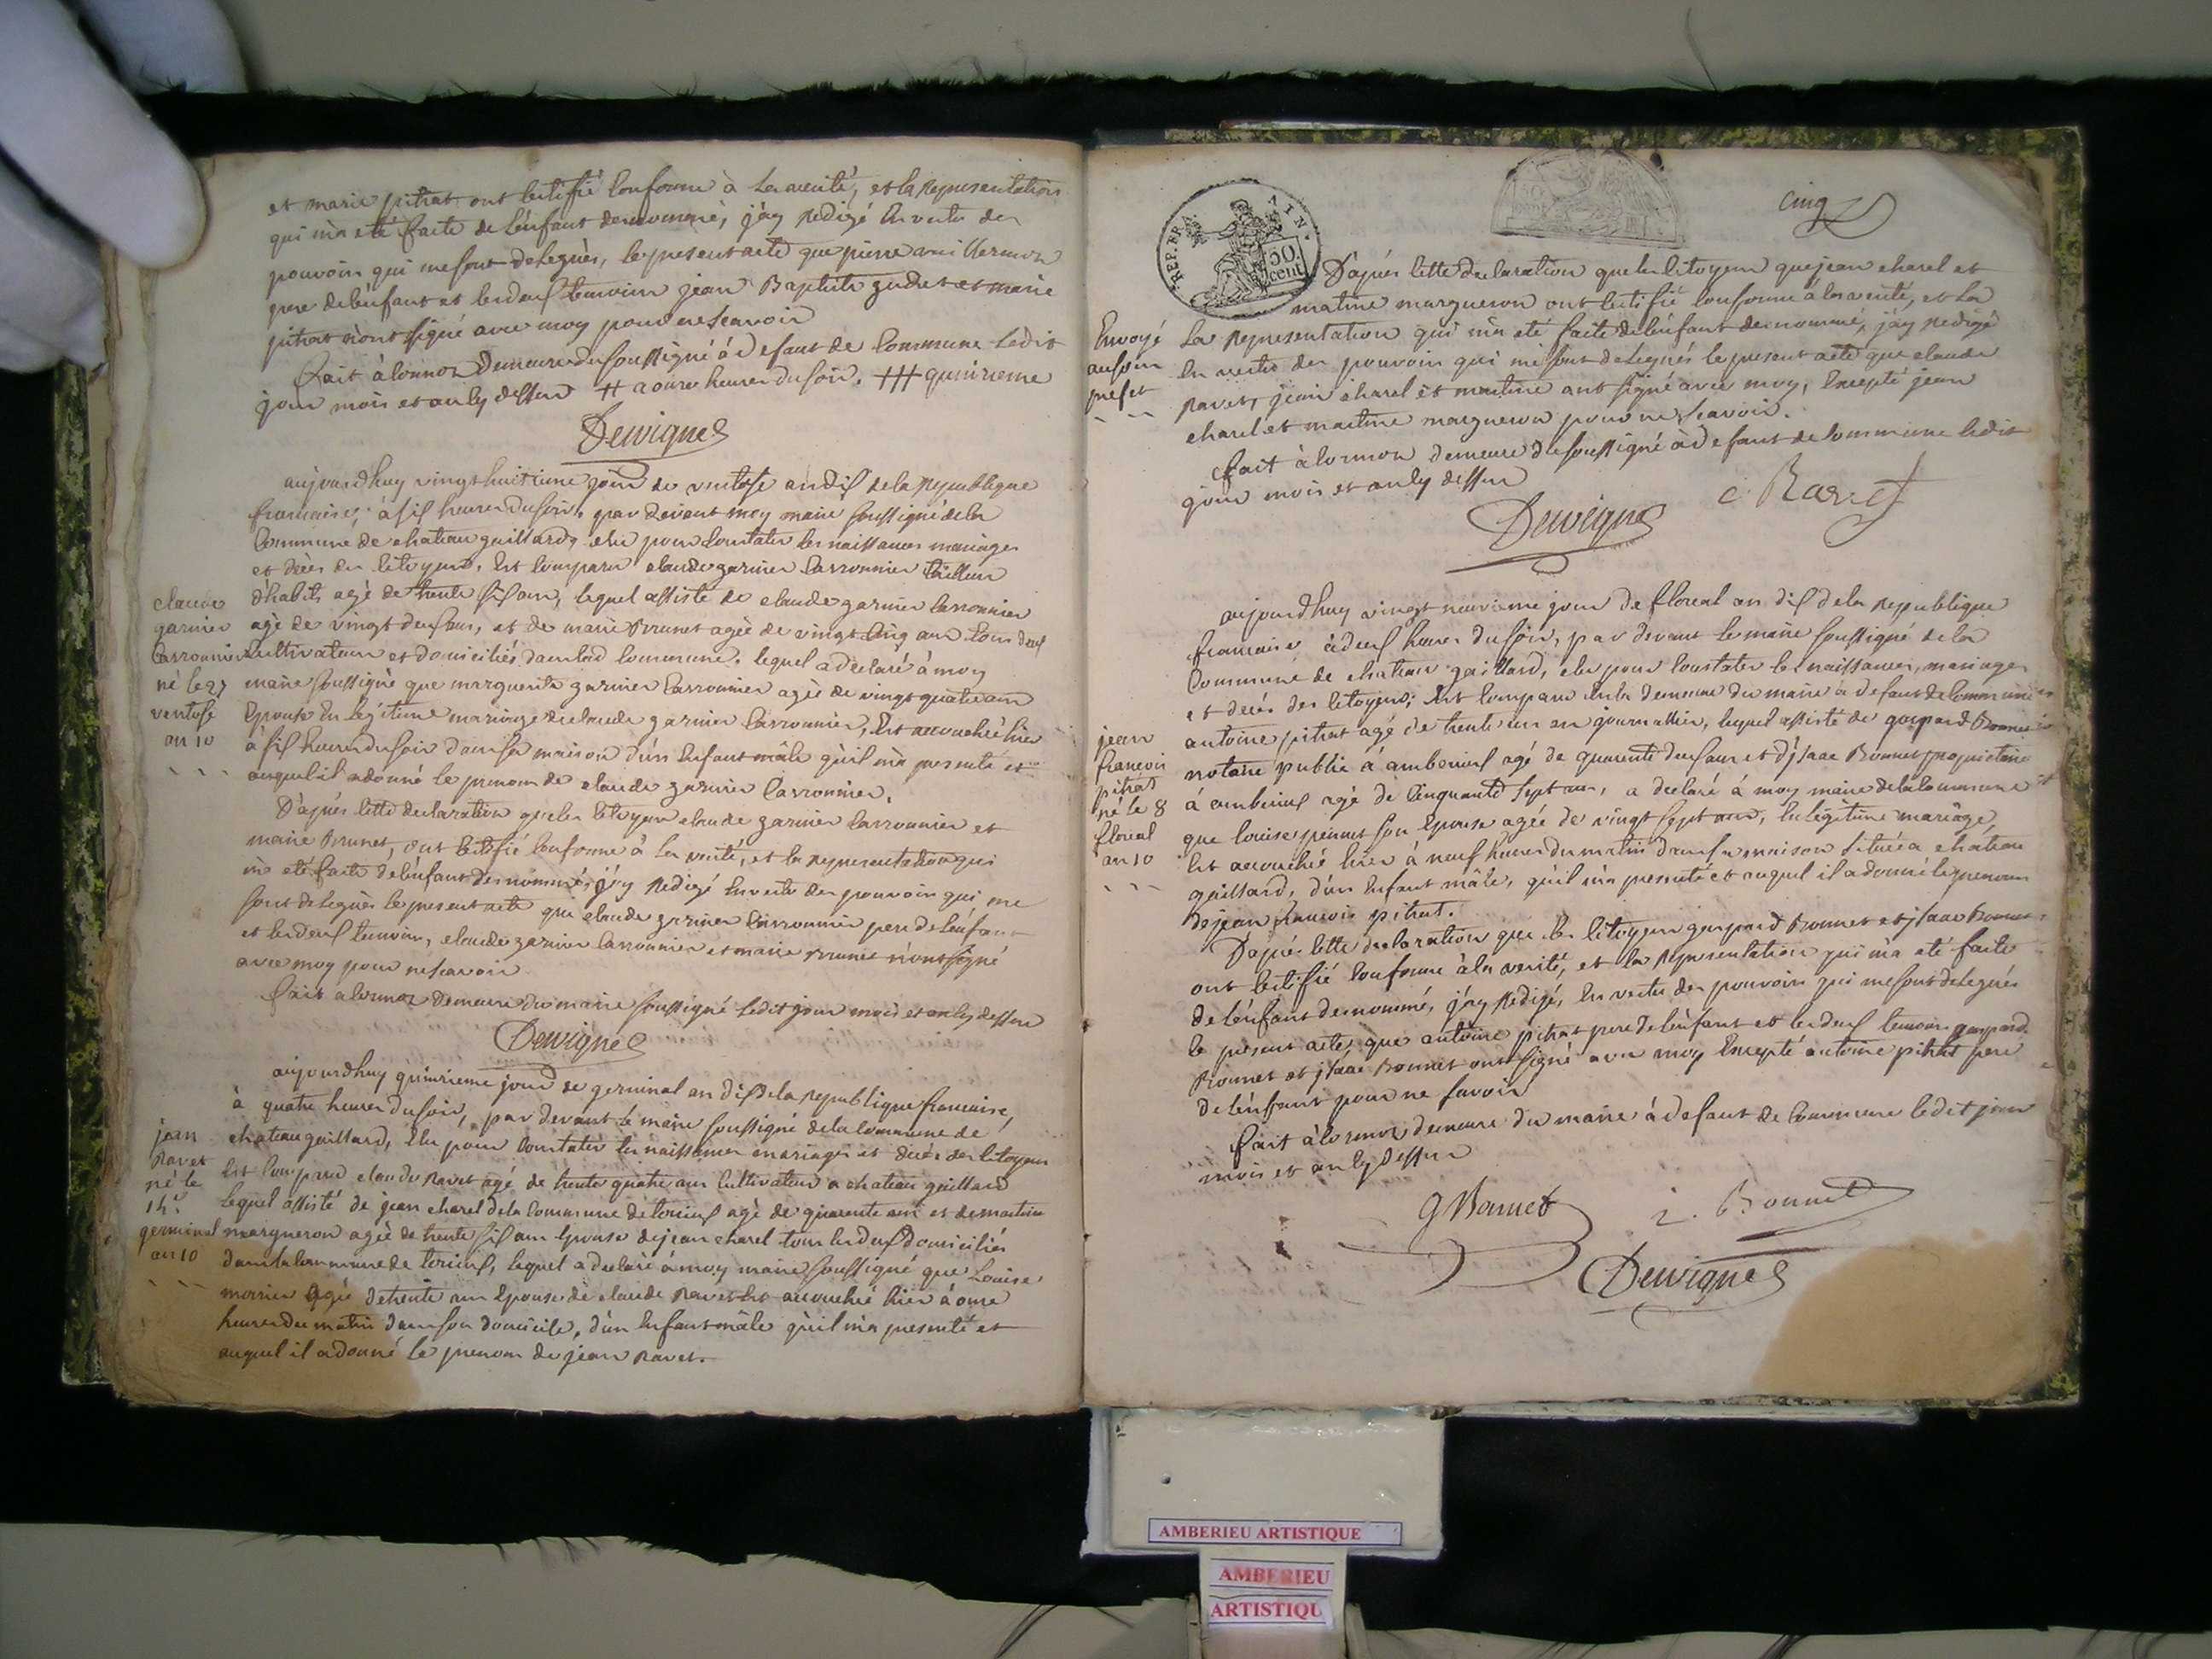 et marie pitrat ont certifié conforme à la verité, et la representation
qui m'a eté faite de l'énfant denommé, j'ay redigé en vertu des
pouvoirs qui me sont delegués, le present acte que pierre
pere de lénfant et les deux temoins jean Baptiste et marie
pitrat n'ont signé avec moy pour ne scavoir
Fait à lormoz Demeure du soussigné à defaut de Commune ledit
jour mois et an cy dessus # a onze heures du soir. ### quinzieme
Dewignes
aujourdhuy vingt huitieme jour de ventose an dix de la republique
francaise, à six heures du soir, par devant moy maire soussigné de la
Commune de chateau gaillard, elu pour constater les naissances mariages
et décès des citoyens, est comparu claude garnier carronnier tailleur
d'habits agé de trente six ans, lequel assisté de claude garnier carronnier
agé de vingt deux ans, et de marie Brunet agée de vingt cinq ans tous deux
cultivateurs et domiciliés dans lad commune, lequel a declaré à moy
maire soussigné que marguerite garnier carronnier agée de vingt quatre ans
épouse en legitime mariage de claude garnier carronnier, est accouchée hier
à six heures du soir dans sa maison d'un enfant mâle qu'il m'a presenté et
auquel il a donné le prenom de claude garnier carronnier.
claude
garnier
carronnier
né le 27
ventose
an 10
D'après cette declaration que les citoyens claude garnier carronnier et
marie Brunet, ont certifié conforme à la verité, et la representation qui
m'a eté faite de lénfant denommé, j'ay redigé en vertu des pouvoirs qui me
sont delegués le present acte que claude garnier carronnier pere de lénfant
et les deux temoins, claude garnier carronnier et marie Brunet n'ont signé
avec moy pour ne scavoir
fait a lormoz Demeure du maire soussigné ledit jour mois et an cy dessus
Dewignes
aujourdhuy quinzieme jour de germinal an dix de la republique francaise,
à quatre heures du soir, par devant le maire soussigné de la commune de
chateau gaillard, elu pour constater les naissances mariages et décès des citoyens
est comparu claude Ravet agé de trente quatre ans cultivateur a chateau gaillard
lequel assisté de jean charel de la commune de agé de quarente ans et de martine
margueron agée de trente six ans épouse de jean charel tous les deux domiciliés
dans la commune de lequel a declaré à moy maire soussigné que Louise
agée de trente ans épouse de claude Ravet est accouchée hier à onze
heures du matin dans son domicile, d'un enfant mâle qu'il m'a presenté et
auquel il a donné le prenom de jean Ravet.
jean
Ravet
né le
14
germinal
an 10
cinq
REP. FRA
50
cent
D'après cette declaration que les citoyens que jean charel et
martine margueron ont certifié conforme à la verité, et la
la representation qui m'a eté faite de lénfant denommé, j'ay redigé
en vertu des pouvoirs qui me sont delegués le present acte que claude
Ravet, jean charel et martine ont signé avec moy, excepté jean
charel et martine margueron pour ne scavoir.
Envoyé
au sous
prefet
fait à lormoz demeure du soussigné à defaut de commune ledit
jour mois et an cy dessus
Dewignes c. Ravet
aujourdhuy vingt neuvieme jour de floreal an dix de la republique
francaise à deux heures du soir, par devant le maire soussigné de la
Commune de chateau gaillard, elu pour constater les naissances, mariages
et decès des citoyens; est comparu en la demeure du maire à defaut de commune
antoine pitrat agé de trente un an journallier, lequel assisté de gaspard Bonnet
notaire public à amberieux agé de quarente deux ans et d'jsaac Bonnet proprietaire
à amberieux agé de cinquante sept ans, a declaré à moy maire de la commune
que louise son épouse agée de vingt sept ans, en legitime mariage,
est accouchée hier à neuf heures du matin dans sa maison située a château
gaillard, d'un enfant mâle, qu'il m'a presenté et auquel il a donné le prenom
de jean francois pitrat.
jean
francois
pitrat
né le 8
floreal
an 10
D'après cette declaration que les citoyens gaspard Bonnet et jsaac Bonnet
ont certifié conforme à la verité, et la representation qui m'a eté faite
de lénfant denommé, j'ay redigé, en vertu des pouvoirs qui me sont delegués
le present acte, que antoine pitrat pere de lénfant et les deux temoins gaspard
Bonnet et jsaac Bonnet ont signé avec moy excepté antoine pitrat pere
de lénffant pour ne savoir
fait à lormoz demeure du maire à defaut de commune ledit jour
mois et an cy dessus
g Bonnet i. Bonnet
Dewignes
AMBERIEU ARTISTIQUE
AMBERIEU
ARTISTIQU